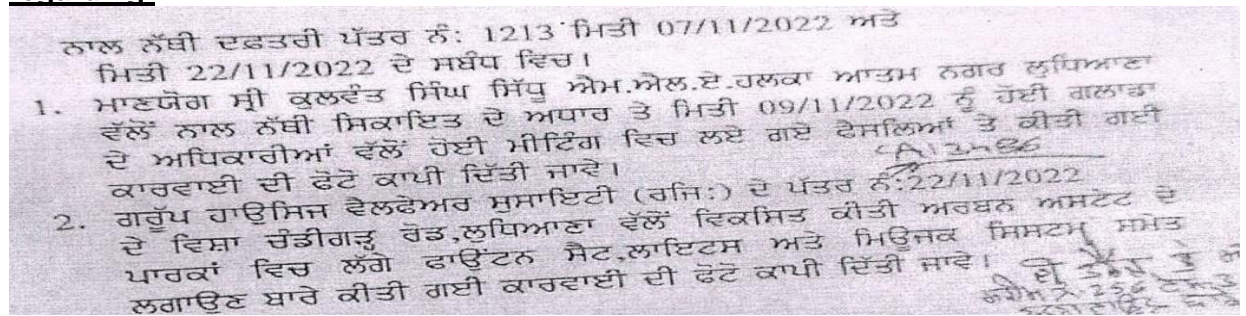 ਨਾਲ ਨੱਥੀ ਦਫਤਰੀ ਪੱਤਰ ਨੰ: 1213 ਮਿਤੀ 07/11/2022 ਅਤੇ
ਮਿਤੀ 22/11/2022 ਦੇ ਸਬੰਧ ਵਿਚ।
1. ਮਾਣਯੋਗ ਸ੍ਰੀ ਕੁਲਵੰਤ ਸਿੰਘ ਸਿੱਧੂ ਐਮ.ਐਲ.ਏ.ਹਲਕਾ ਆਤਮ ਨਗਰ ਲੁਧਿਆਣਾ
ਵੱਲੋਂ ਨਾਲ ਨੱਥੀ ਸਿਕਾਇਤ ਦੇ ਅਧਾਰ ਤੇ ਮਿਤੀ 09/11/2022 ਨੂੰ ਹੋਈ ਗਲਾਡਾ
ਦੇ ਅਧਿਕਾਰੀਆਂ ਵੱਲੋਂ ਹੋਈ ਮੀਟਿੰਗ ਵਿਚ ਲਏ ਗਏ ਫੈਸਲਿਆਂ ਤੇ ਕੀਤੀ ਗਈ
ਕਾਰਵਾਈ ਦੀ ਫੋਟੋ ਕਾਪੀ ਦਿੱਤੀ ਜਾਵੇ।
2. ਗਰੁੱਪ ਹਾਉਸਿਜ ਵੈਲਫੇਅਰ ਸੁਸਾਇਟੀ (ਰਜਿ:) ਦੇ ਪੱਤਰ ਨੰ:22/11/2022
ਦੇ ਵਿਸ਼ਾ ਚੰਡੀਗੜ੍ਹ ਰੋਡ,ਲੁਧਿਆਣਾ ਵੱਲੋਂ ਵਿਕਸਿਤ ਕੀਤੀ ਅਰਬਨ ਅਸਟੇਟ ਦੇ
ਪਾਰਕਾਂ ਵਿਚ ਲੱਗੇ ਫਾਉਂਟਨ ਸੈਟ,ਲਾਇਟਸ ਅਤੇ ਮਿਉਜਕ ਸਿਸਟਮ ਸਮੇਤ
ਲਗਾਉਣ ਬਾਰੇ ਕੀਤੀ ਗਈ ਕਾਰਵਾਈ ਦੀ ਫੋਟੋ ਕਾਪੀ ਦਿੱਤੀ ਜਾਵੇ।